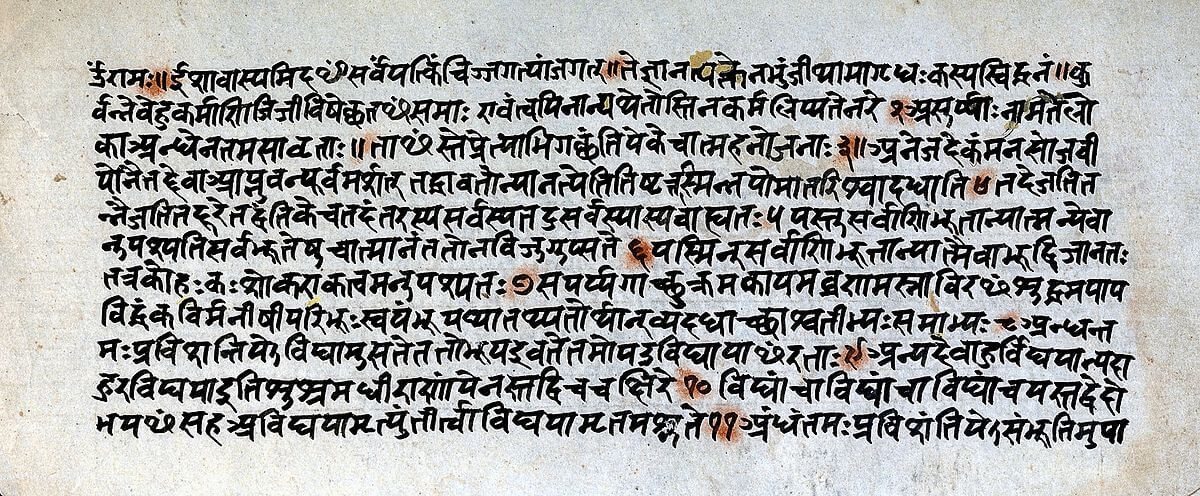 ॐरामः॥ईशावास्यमिदꣳसर्वंयत्किंचिज्जगत्यांजगत्॥तेनत्यक्तेनभुंजीथामागृधःकस्यस्विद्धनं॥कु
र्वन्नेवेहकर्माणिजिजीविषेच्छतꣳसमाः एवंत्वयिनान्यथेतोस्तिनकर्मलिप्यतेनरे २असुर्य्याःनामतेलो
काअन्धेनतमसावृताः॥ताꣳस्तेप्रेत्याभिगच्छंतियेकेचात्महनोजनाः३॥अनेजदेकंमनसोजवी
योनैनद्देवाआप्नुवन्पूर्वमर्शत् तद्धावतोन्यानत्येतितिष्ठत्तस्मिन्नपोमातरिश्वादधाति४तदेजतित
न्नैजतितद्दूरेतद्वंतिकेचतदंतरस्यसर्वस्यतदुसर्वस्यास्यबाह्यतः५यस्तुसर्वाणिभूतान्यात्मन्येवा
नुपश्यतिसर्वभूतेषुचात्मानंततोनविजुगुप्सते ६यस्मिन्सर्वाणिभूतान्यात्मैवाभूद्विजानतः
तत्रकोहःकःशोकएकत्वमनुपश्यतः७सपर्य्यगाच्छुक्रमकायमव्रणमस्नाविरꣳशुद्धमपाप
विद्धंकविर्मनीषीपरिभूःस्वयंभूयथातथ्यतोर्थान्व्यदधाच्छाश्वतीभ्यःसमाभ्यः८अन्धन्त
मःप्रविशन्तियेऽविद्यामुपासतेततोभूयइवतेतमोयउविद्यायाꣳरताः९अन्यदेवाहुर्विद्ययान्यदा
हुरविद्ययाइतिशुश्रुमधीराणांयेनस्तद्विचचक्षिरे१०विद्यांचाविद्यांचाविद्यांचयस्तद्वेदो
भयꣳसहअविद्ययामृत्युंतीर्त्वाविद्ययामृतमश्नुते११अंधंतमःप्रविशंतियेऽसंभूतिमुपा